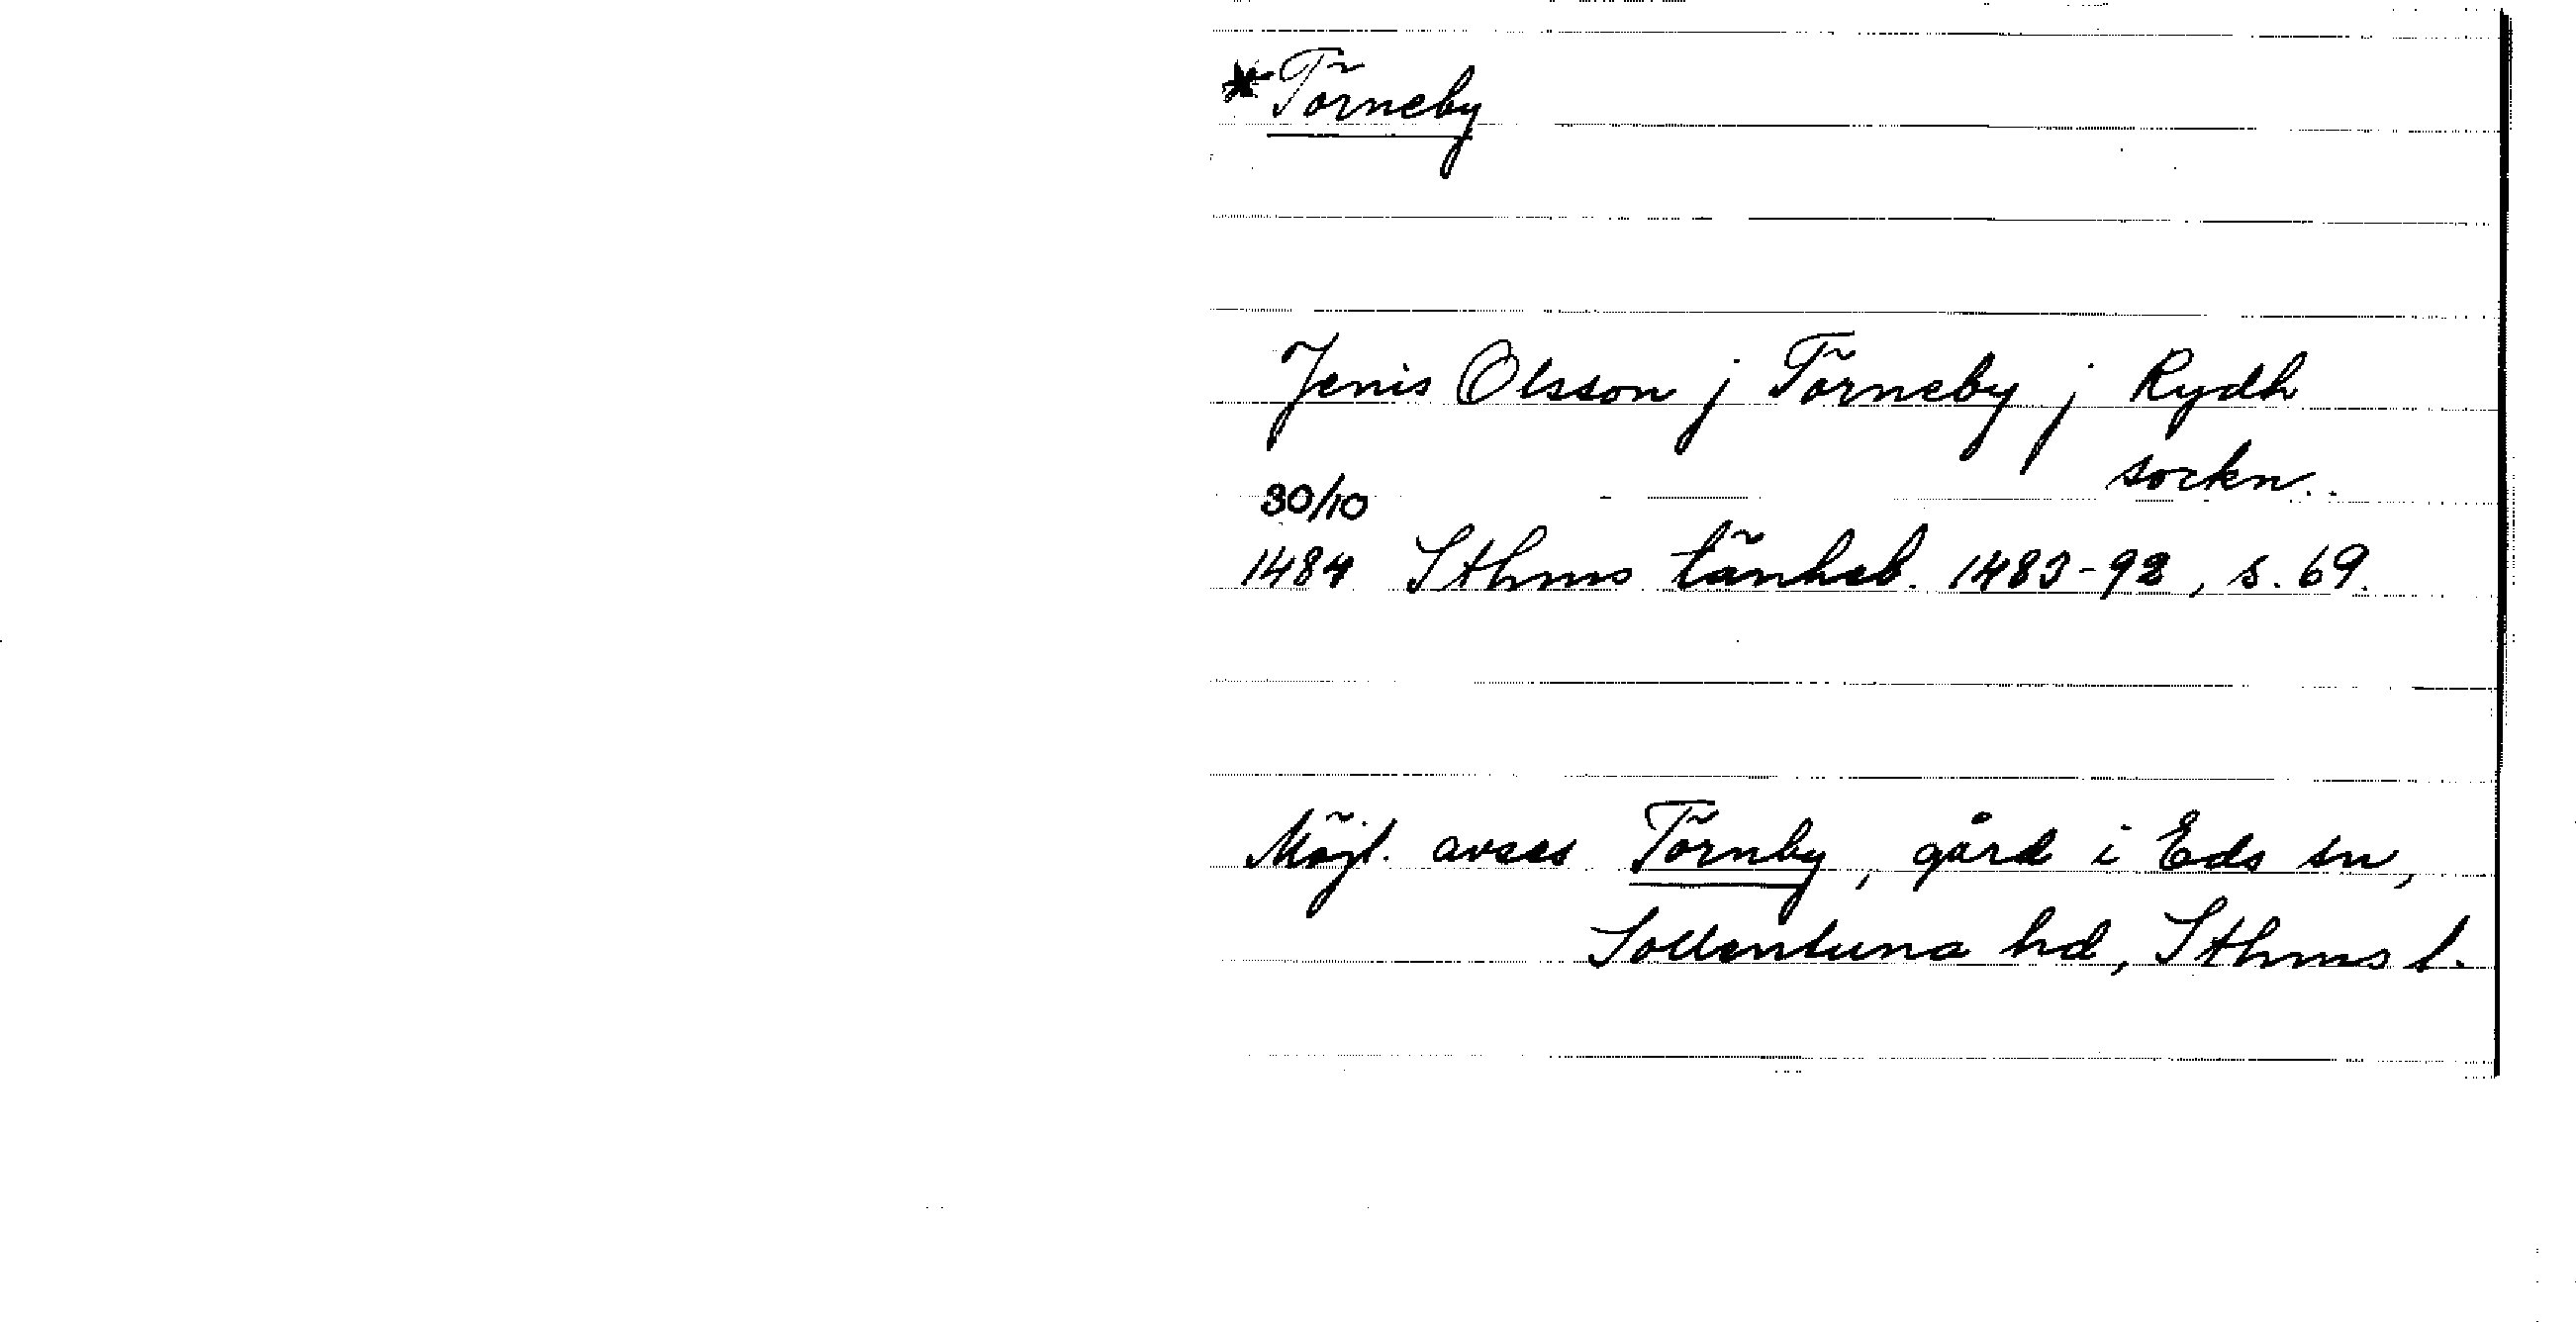 *Törneby
Jenis Olsson j Törneby j Rydh
sockn..
30/10
1484 Sthms tänkeb. 1483-92, s. 69.
Möjl. avses Törnby, gård i Eds sn,
Sollentuna hd, Sthms l.